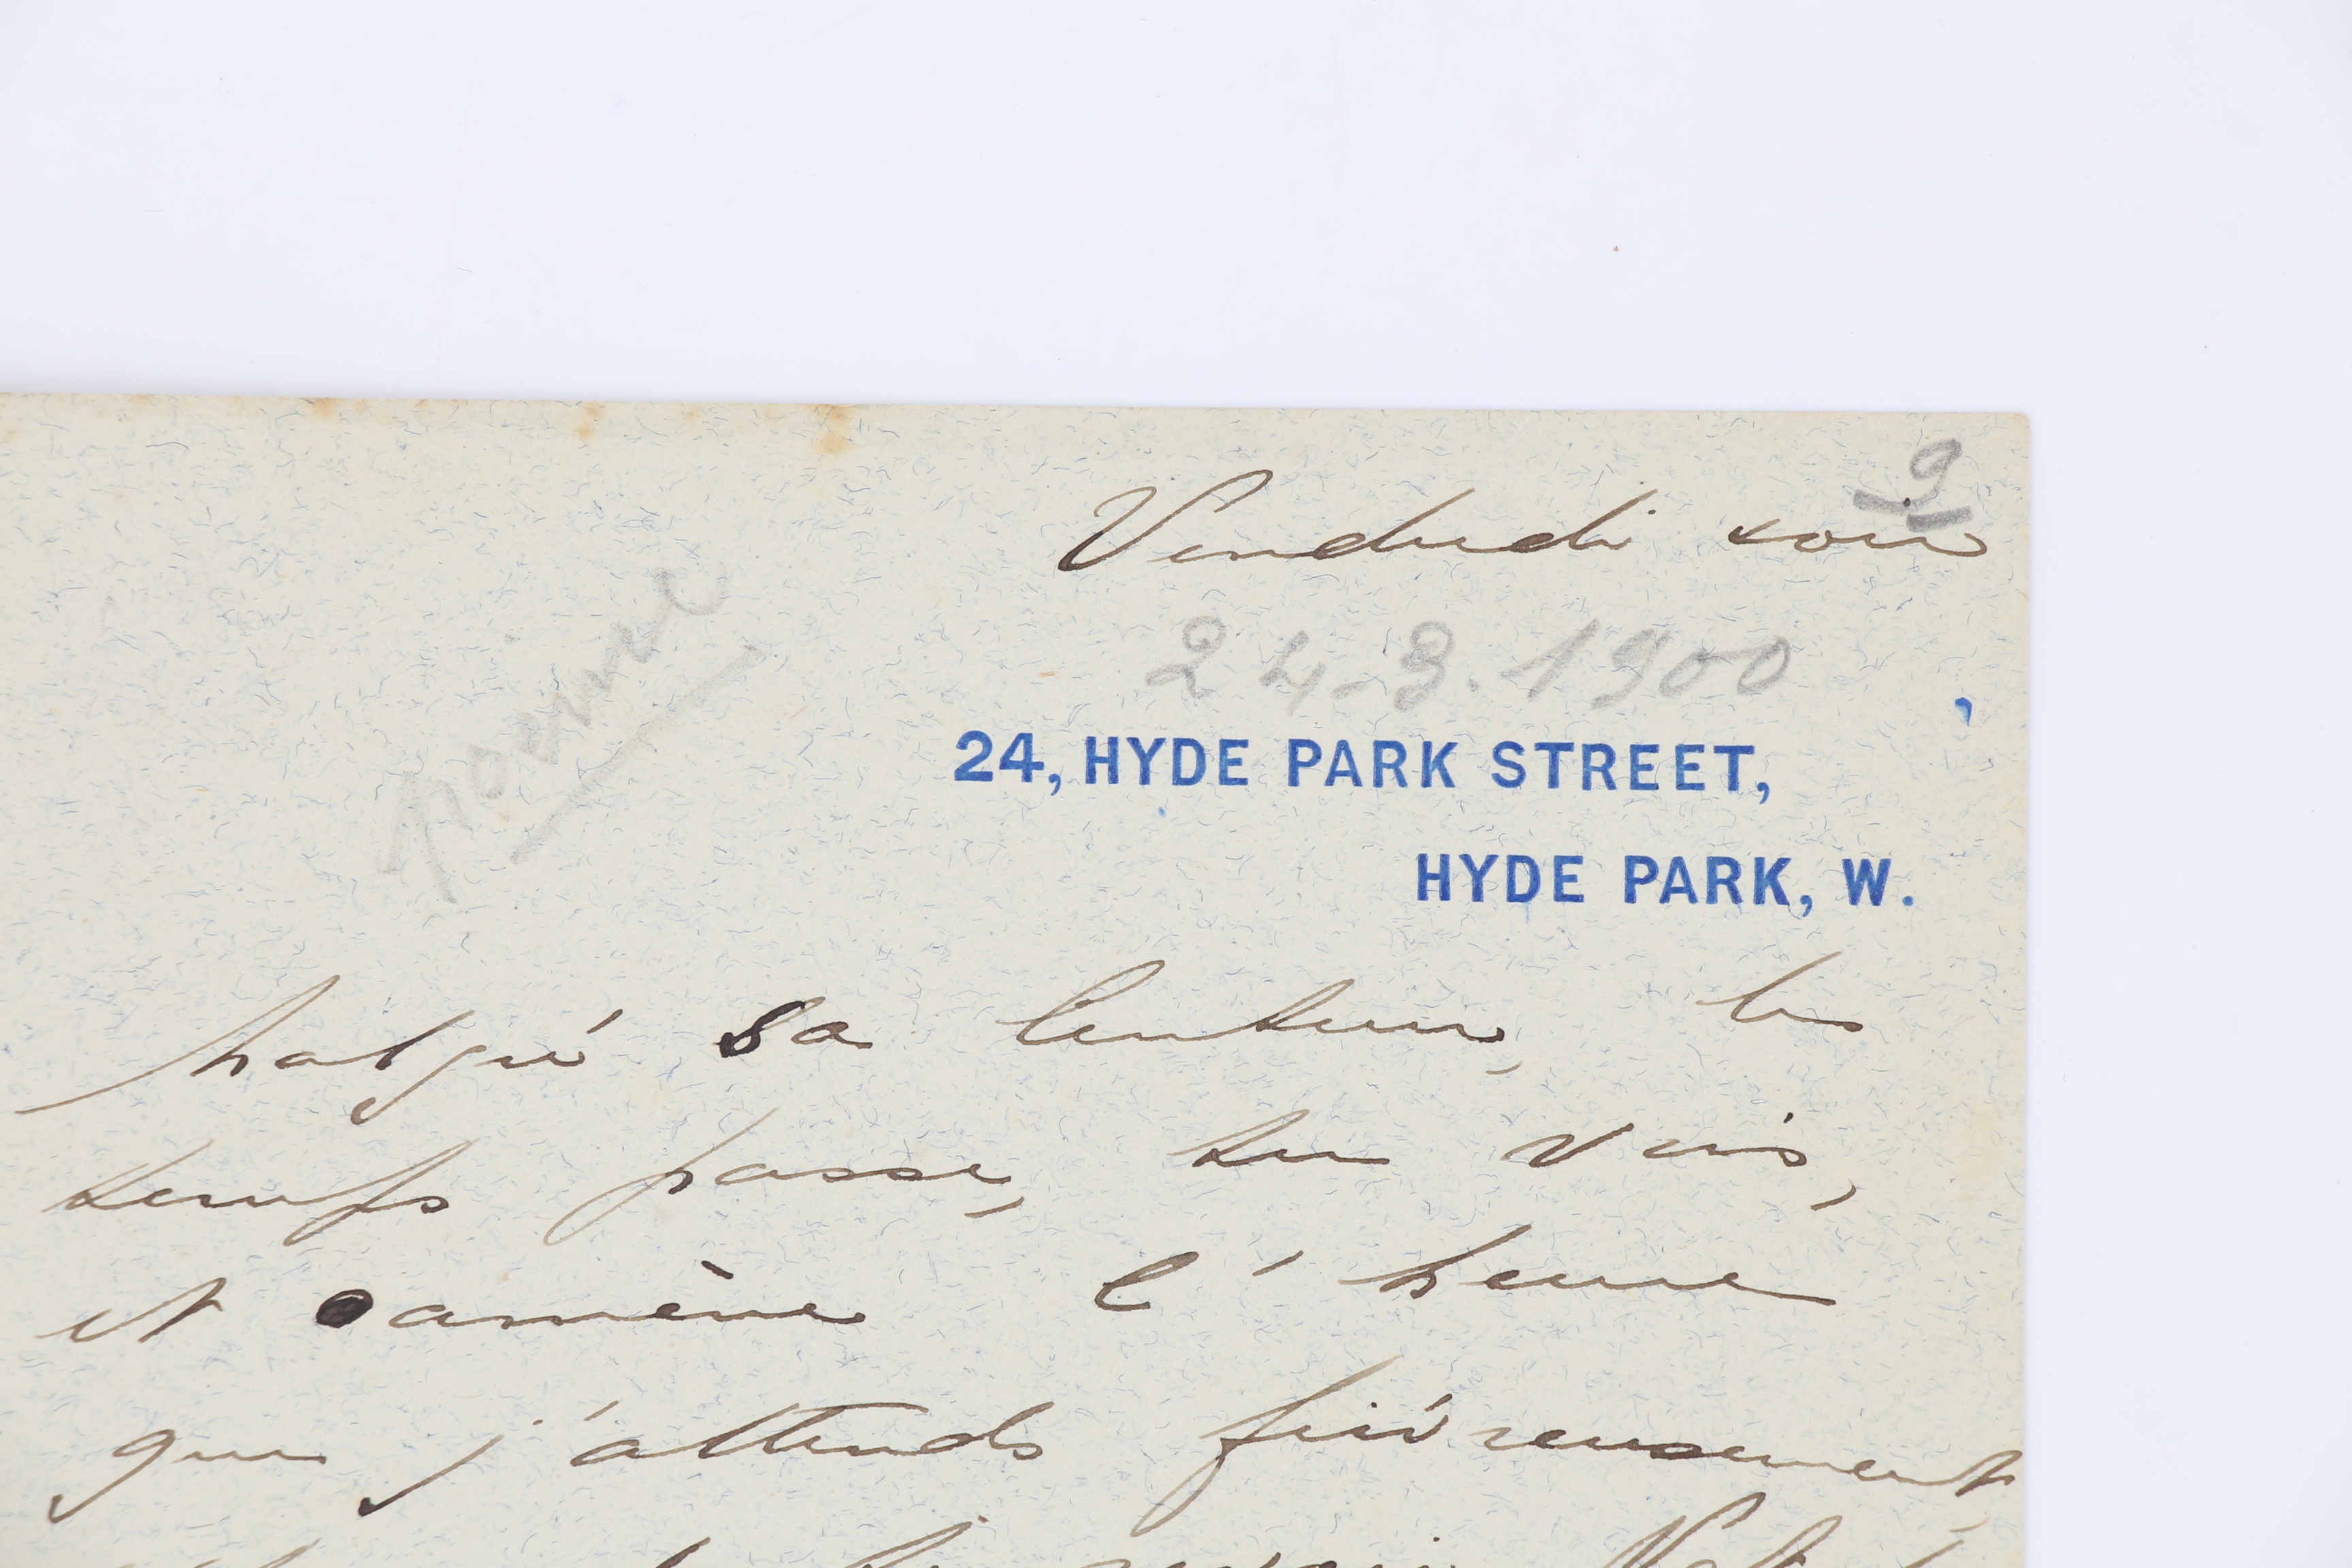 9
Vendredi soir
24.3.1900
24, HYDE PARK STREET,
HYDE PARK, W.
Malgré sa lenteur, les
temps passe, tu vois,
et amène l'heure
que j'attends fiévreusement,